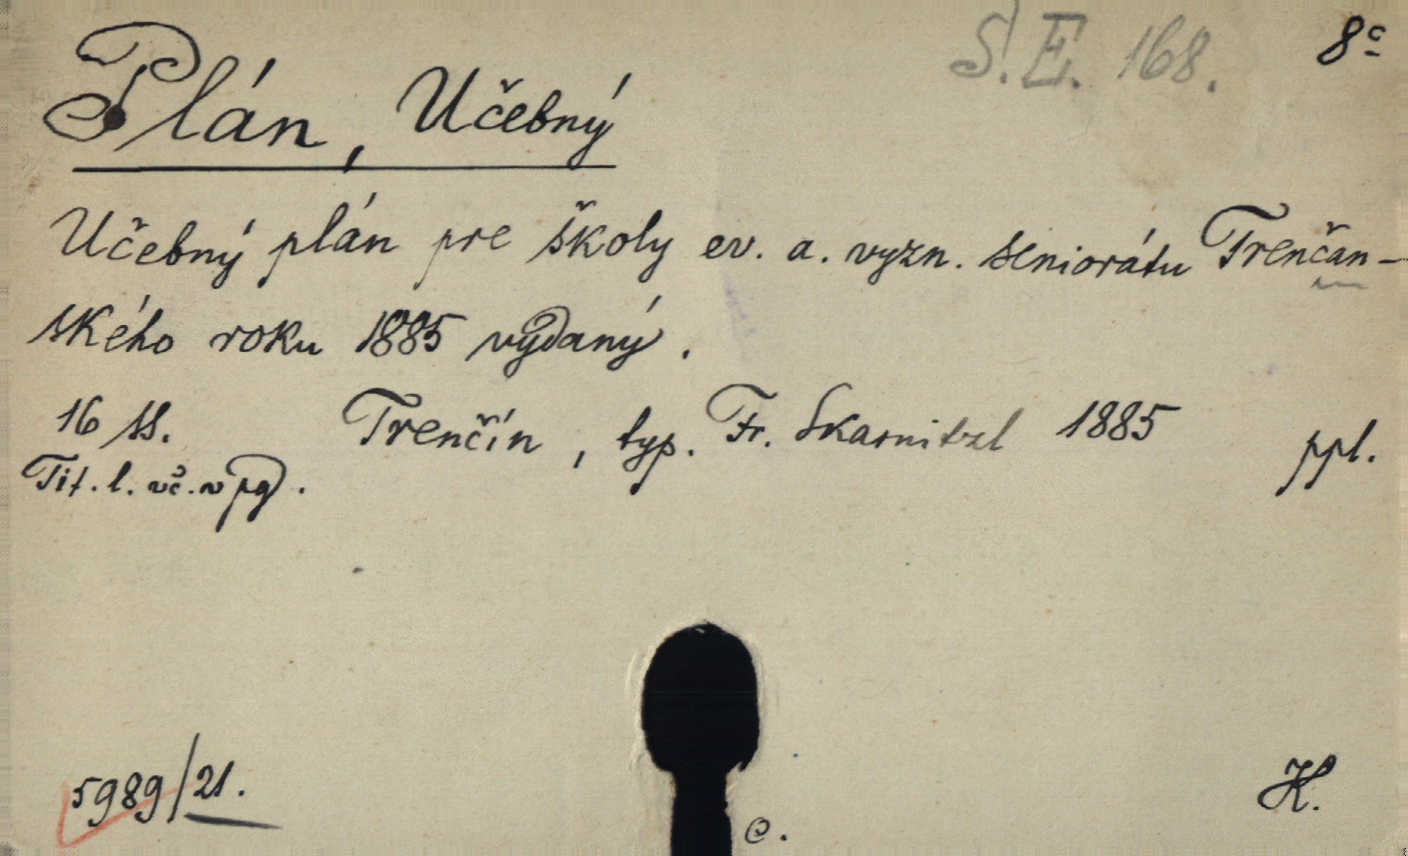 S. E. 168. 8°
Plán, Učebný
Učebný plán pre školy ev. a. vyzn. seniorátu Trenčan-
ského roku 1885 vydaný.
16 ss. Trenčín, typ. Fr. Skarnitzl 1885 ppl.
Tit. l. vč. v pg.
5989/21. H.